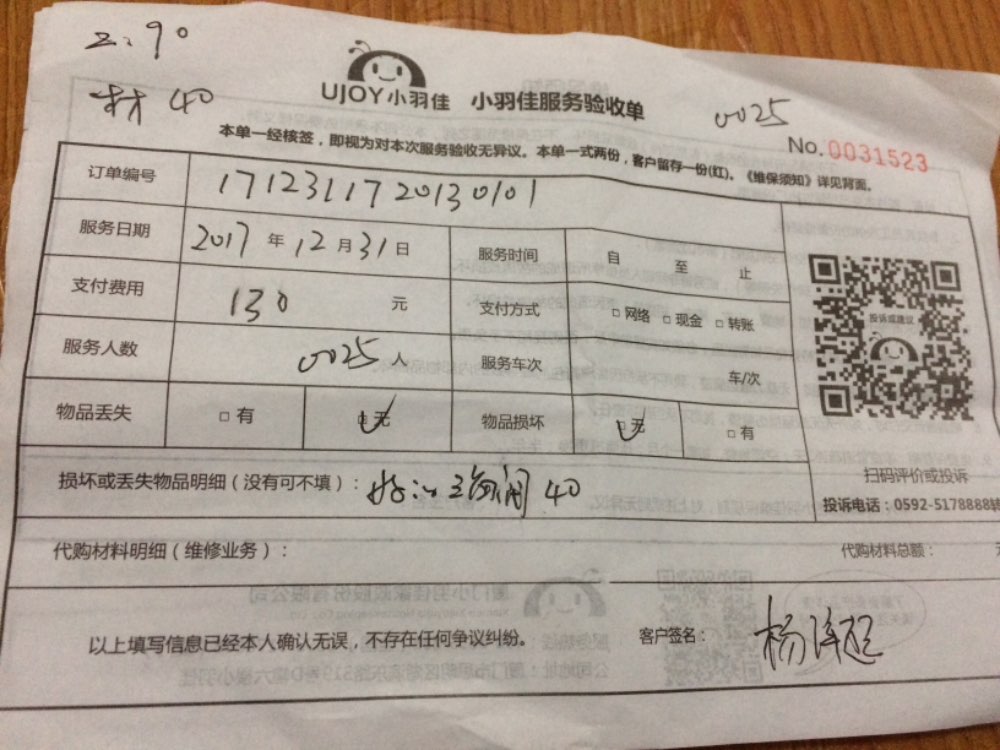 工:90
材 40
UJOY小羽佳 小羽佳服务验收单
0025
No.0031523
本单一经核签，即视为对本次服务验收无异议。本单一式两份，客户留存一份(红)。《维保须知》详见背面。
订单编号 1712311720130101
服务日期 2017 年 12 月 31 日 服务时间 自 至 止
支付费用 130 元 支付方式 □ 网络 □ 现金 □ 转账
投诉或建议
服务人数 0025 人 服务车次 车/次
物品丢失 □ 有 □ 无 物品损坏 □ 无 □ 有
扫码评价或投诉
损坏或丢失物品明细（没有可不填）： 40
投诉电话：0592-5178888转
代购材料明细（维修业务）： 代购材料总额：
以上填写信息已经本人确认无误，不存在任何争议纠纷。 客户签名： 杨